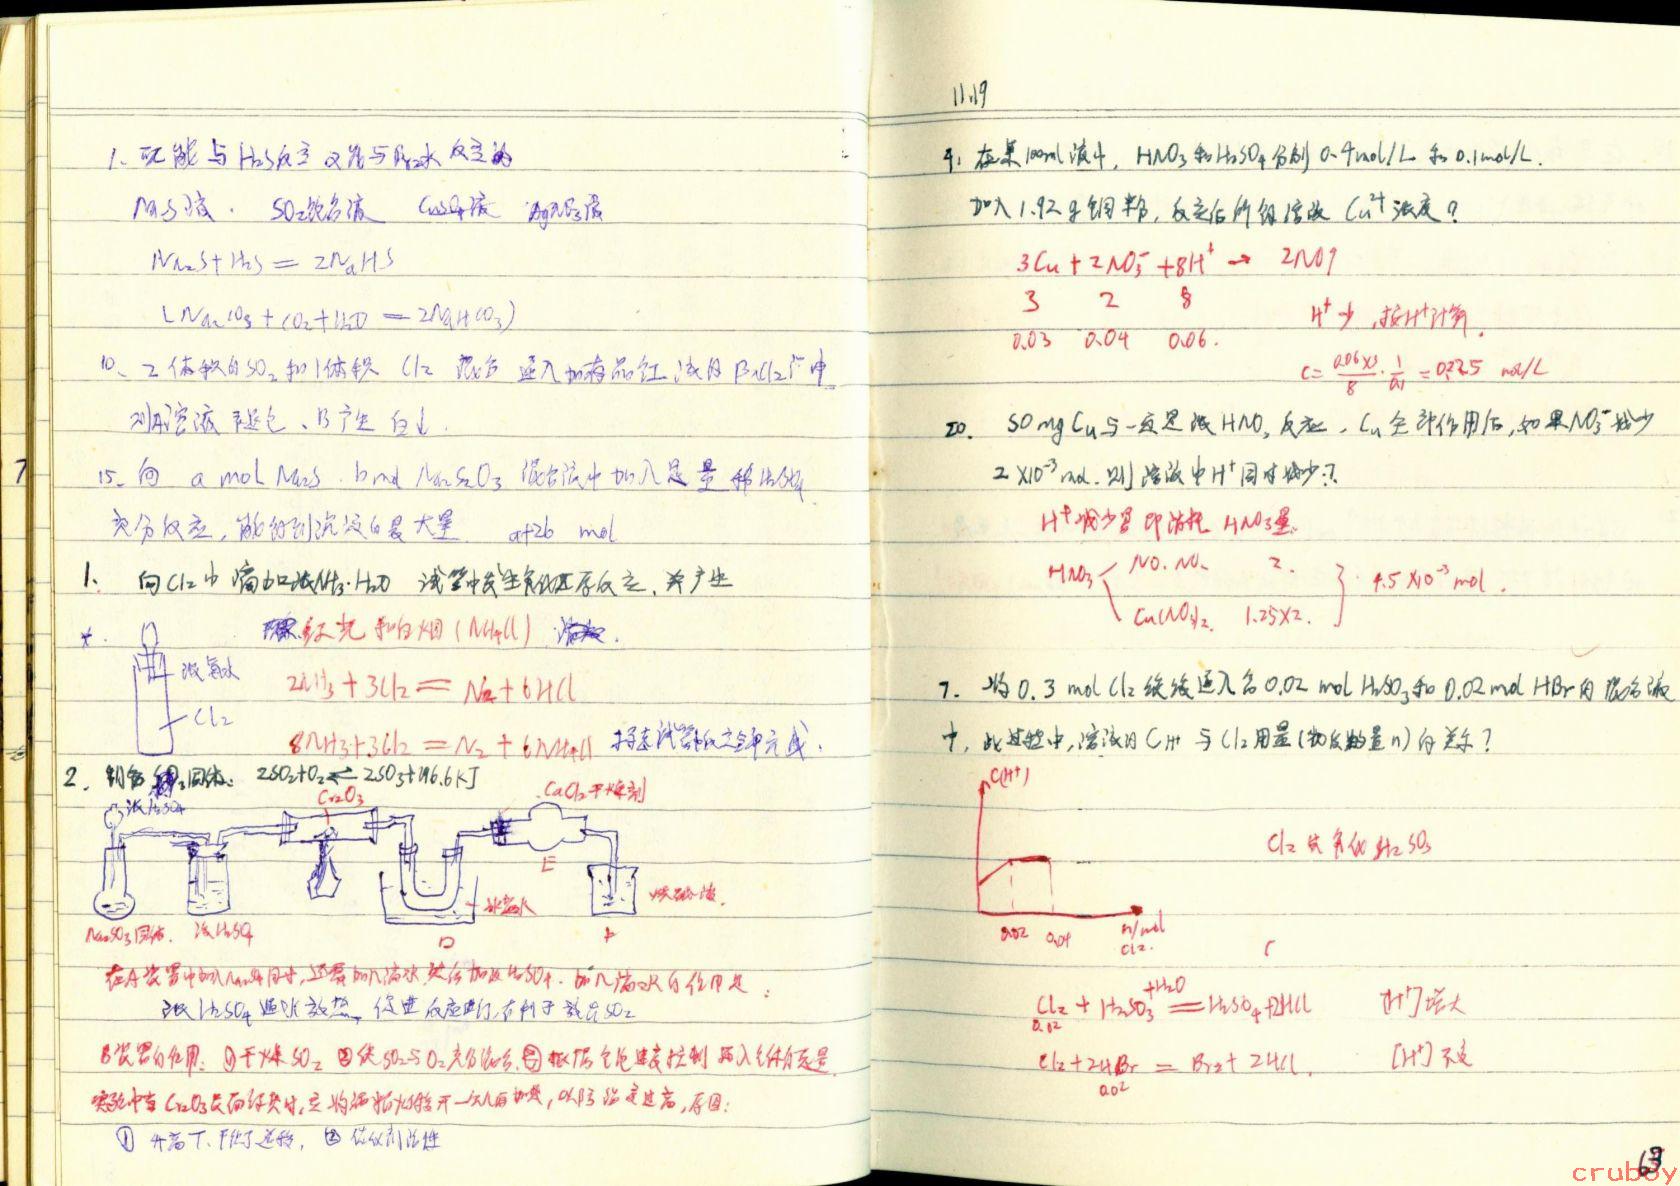 1. 既能与H₂S反应又能与Br₂水反应的
Na₂S液. SO₂饱合液 CuSO₄液 AgNO₃液
Na₂S+H₂S = 2NaHS
(Na₂CO₃+CO₂+H₂O = 2NaHCO₃)
10、2体积的SO₂和1体积 Cl₂ 混合 通入加有品红 液的BaCl₂ 中
则A溶液 褪色、B产生白↓.
15. 向 a mol Na₂S . b mol Na₂S₂O₃ 混合液中加入足量稀H₂SO₄
充分反应, 能得到沉淀的最大量 a+2b mol
1. 向Cl₂中滴加浓NH₃·H₂O 试管中发生氧化还原反应、并产生
火光和白烟(NH₄Cl)
浓氨水
Cl₂
2NH₃+3Cl₂ = N₂+6HCl
8NH₃+3Cl₂ = N₂+6NH₄Cl
2. 制备 固体: 2SO₂+O₂⇌2SO₃+196.6KJ
浓H₂SO₄
Cr₂O₃
CaCl₂干燥剂
E
冰盐水
D
F
Na₂SO₃固体. 浓H₂SO₄
在A装置中加入Na₂SO₃同时, 还要加入滴水, 然后加浓H₂SO₄. 加入滴水的作用是:
浓H₂SO₄遇水放热, 促进反应进行, 有利于放出SO₂
B装置的作用: ①干燥SO₂ ②使SO₂与O₂充分混合. ③根据气泡速度控制 通入气体的流量
实验中当Cr₂O₃表面红热时, 应将酒精灯移开一会儿再加热, 以防温度过高, 原因:
① 升高T、平衡逆移, ② 催化剂活性
11.19
4. 在某100ml液中, HNO₃和H₂SO₄分别0.4mol/L 和 0.1mol/L.
加入1.92g铜粉, 反应后所得溶液 Cu²⁺浓度?
3Cu + 2NO₃⁻ + 8H⁺ → 2NO↑
3 2 8
0.03 0.04 0.06.
H⁺少, 按H⁺计算.
c= 0.06×3/8 · 1/0.1 = 0.225 mol/L
20. 50mgCu与一定量浓HNO₃反应, Cu全部作用后, 如果NO₃⁻减少
2×10⁻³mol. 则溶液中H⁺同时减少?
H⁺减少量即消耗 HNO₃量.
HNO₃ NO. NO₂ 2.
Cu(NO₃)₂. 1.25×2. } 4.5×10⁻³mol.
7. 将0.3 mol Cl₂缓缓通入含0.02 mol H₂SO₃和0.02 mol HBr的混合液
中, 此过程中, 溶液的CH⁺与Cl₂用量(物质的量n)的关系?
C(H⁺)
Cl₂先氧化H₂SO₃
0.02 0.04 n/mol
Cl₂.
Cl₂ + H₂SO₃ +H₂O = H₂SO₄+2HCl [H⁺]增大
0.02
Cl₂+2HBr = Br₂+2HCl. [H⁺]不变
0.02
63
cruboy